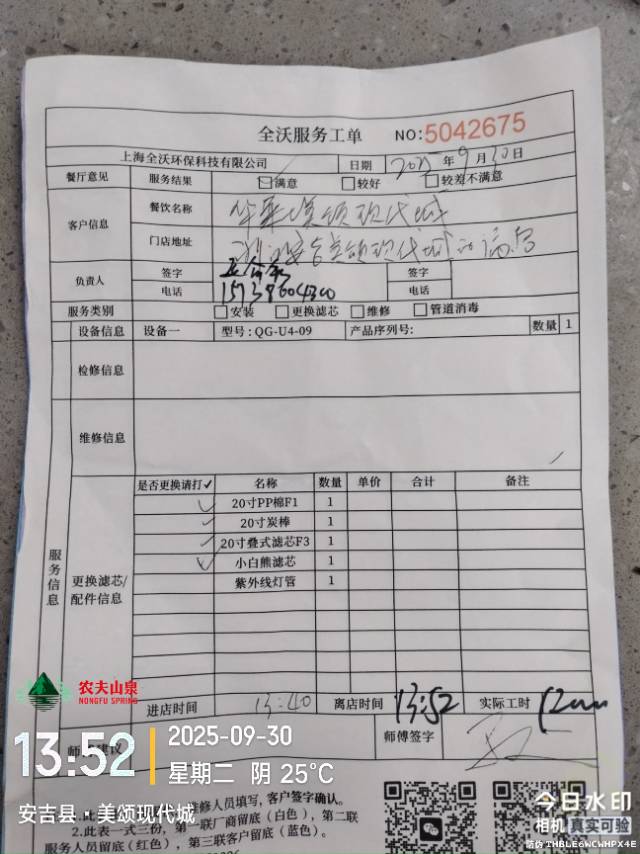 全沃服务工单 NO:5042675
上海全沃环保科技有限公司 日期 2025年9月30日
餐厅意见 服务结果 满意 较好 较差不满意
客户信息 餐饮名称 美颂现代城
门店地址 美颂现代城
负责人 签字 签字
电话 15738604300 电话
服务类别 安装 更换滤芯 维修 管道消毒
设备信息 设备一 型号:QG-U4-09 产品序列号: 数量 1
检修信息
维修信息
服务信息
更换滤芯/配件信息
是否更换请打✓ 名称 数量 单价 合计 备注
✓ 20寸PP棉F1 1
✓ 20寸炭棒 1
✓ 20寸叠式滤芯F3 1
✓ 小白熊滤芯 1
紫外线灯管 1
农夫山泉
NONGFU SPRING
进店时间 13:40 离店时间 13:52 实际工时 12min
师傅建议 师傅签字
13:52 2025-09-30
星期二 阴 25℃
安吉县·美颂现代城
维修人员填写,客户签字确认。
2.此表一式三份,第一联厂商留底(白色),第二联
服务人员留底(红色),第三联客户留底(蓝色)。
今日水印
相机 真实可验
防伪 THBLE6WCWHPX4E